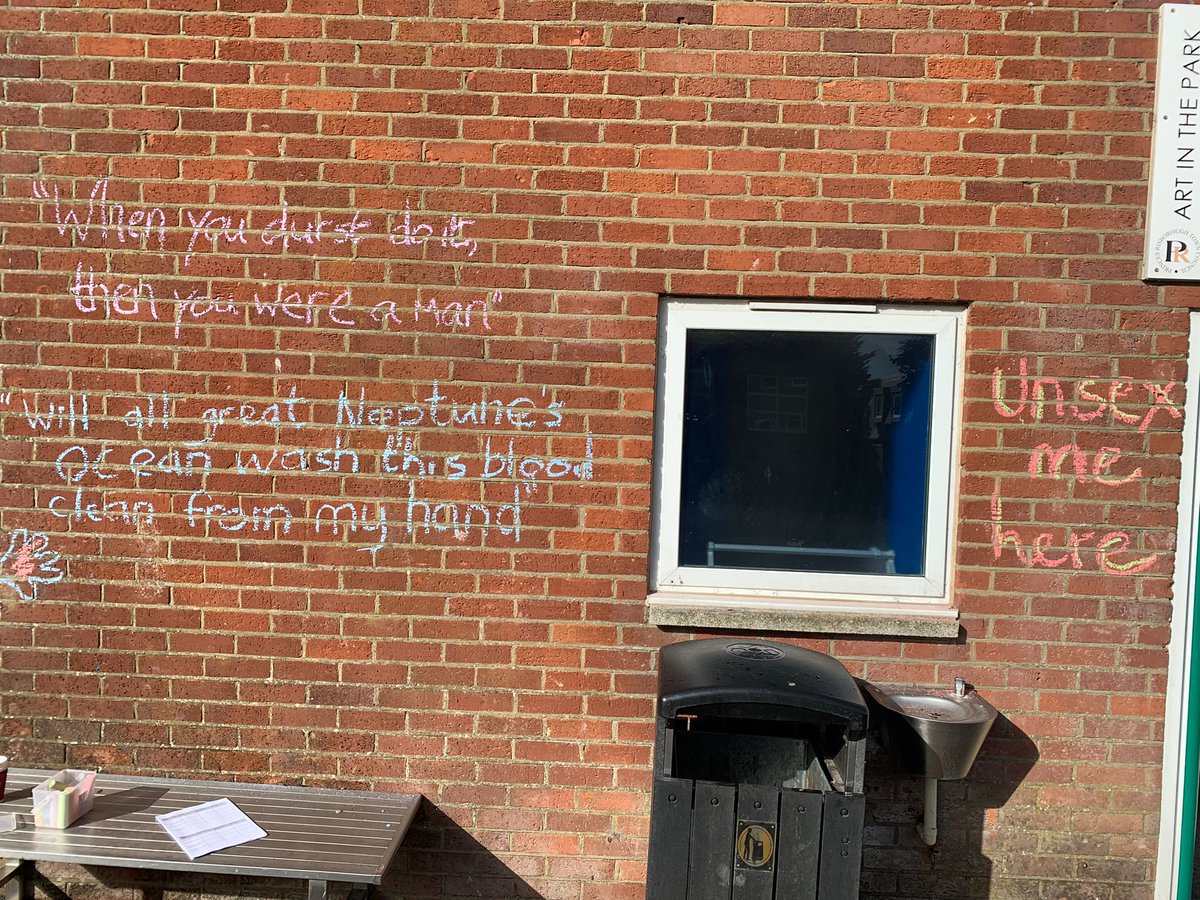 "When you durst do it,
then you were a man"
"Will all great Neptune's
Ocean wash this blood
clean from my hand"
Unsex
me
here
ART IN THE PARK
PRINCES RISBOROUGH TOWN COUNCIL
PR